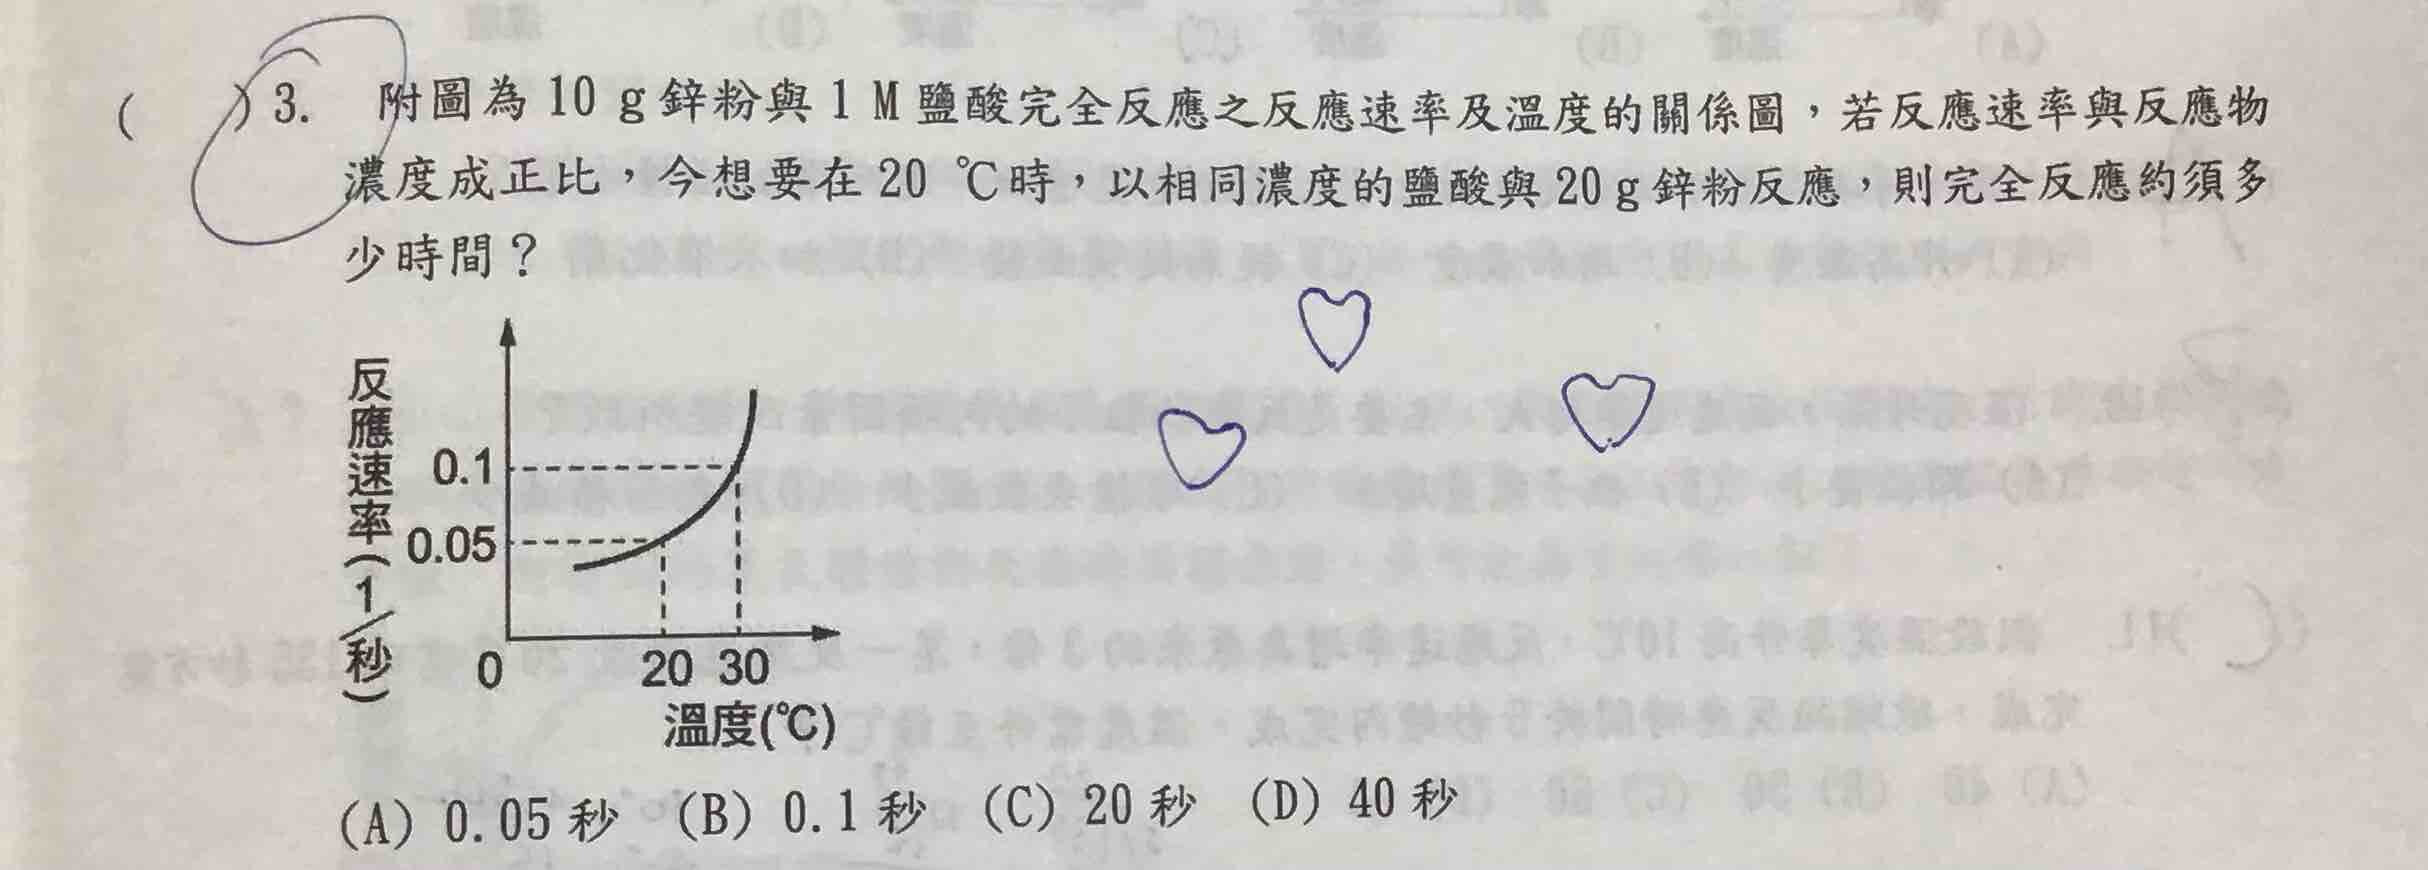 ( )3. 附圖為 10 g 鋅粉與 1 M 鹽酸完全反應之反應速率及溫度的關係圖，若反應速率與反應物
濃度成正比，今想要在 20 ℃時，以相同濃度的鹽酸與 20 g 鋅粉反應，則完全反應約須多
少時間？
反應速率(1/秒)
0.1
0.05
0 20 30
溫度(℃)
(A) 0.05 秒 (B) 0.1 秒 (C) 20 秒 (D) 40 秒